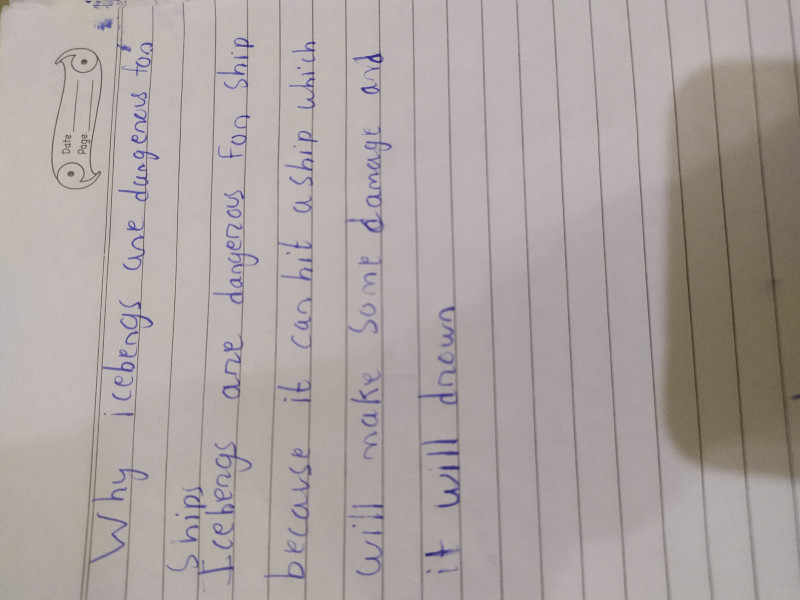 Date
Page
Why icebergs are dangerous for
Ships
Icebergs are dangerous For ship
because it can hit a ship which
will make some damage and
it will drown